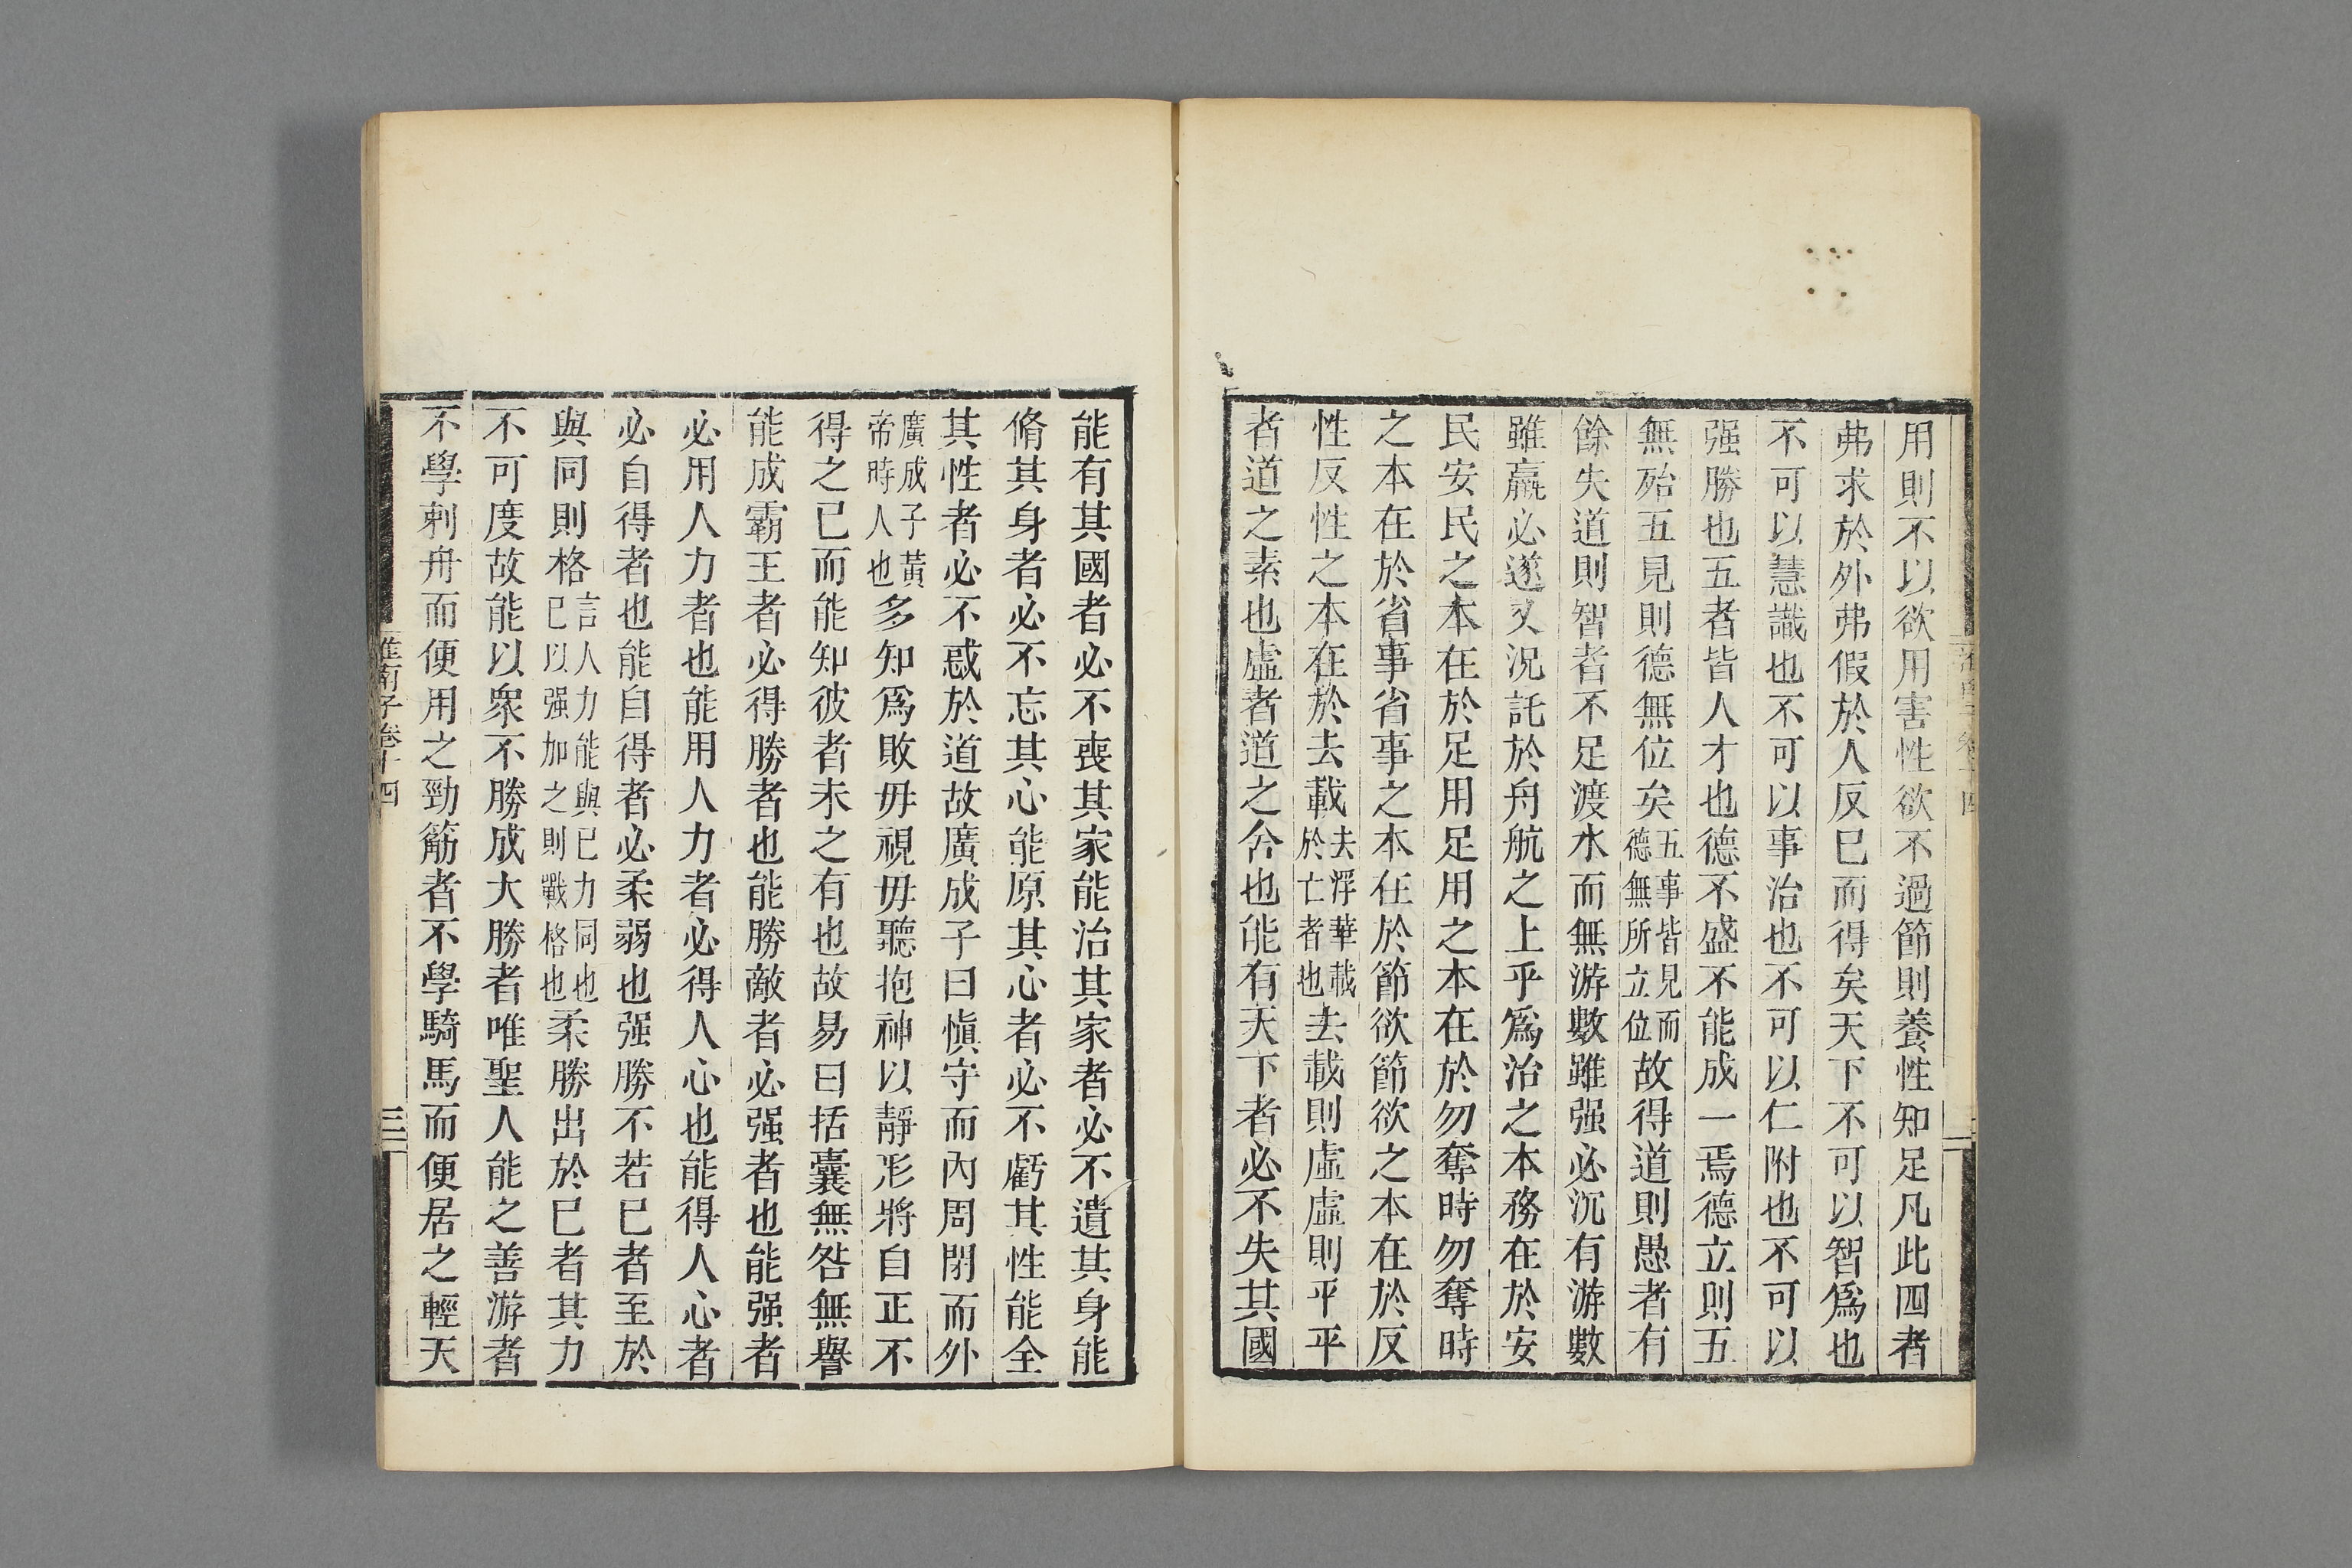 用則不以欲用害性欲不過節則養性知足凡此四者
弗求於外弗假於人反巳而得矣天下不可以智爲也
不可以慧識也不可以事治也不可以仁附也不可以
强勝也五者皆人才也德不盛不能成一焉德立則五
無殆五見則德無位矣五事皆見而德無所立位故得道則愚者有
餘失道則智者不足渡水而無游數雖强必沉有游數
雖羸必遂又況託於舟航之上乎爲治之本務在於安
民安民之本在於足用足用之本在於勿奪時勿奪時
之本在於省事省事之本在於節欲節欲之本在於反
性反性之本在於去載去浮華載於亡者也去載則虛虛則平平
者道之素也虛者道之舍也能有天下者必不失其國
能有其國者必不喪其家能治其家者必不遺其身能
脩其身者必不忘其心能原其心者必不虧其性能全
其性者必不惑於道故廣成子曰愼守而內周閉而外
廣成子黃帝時人也多知爲敗毋視毋聽抱神以靜形將自正不
得之已而能知彼者未之有也故易曰括囊無咎無譽
能成霸王者必得勝者也能勝敵者必强者也能强者
必用人力者也能用人力者必得人心也能得人心者
必自得者也能自得者必柔弱也强勝不若已者至於
與同則格言人力能與已力同也已以强加之則戰格也柔勝出於已者其力
不可度故能以衆不勝成大勝者唯聖人能之善游者
不學刺舟而便用之勁筋者不學騎馬而便居之輕天
淮南子卷十四
三